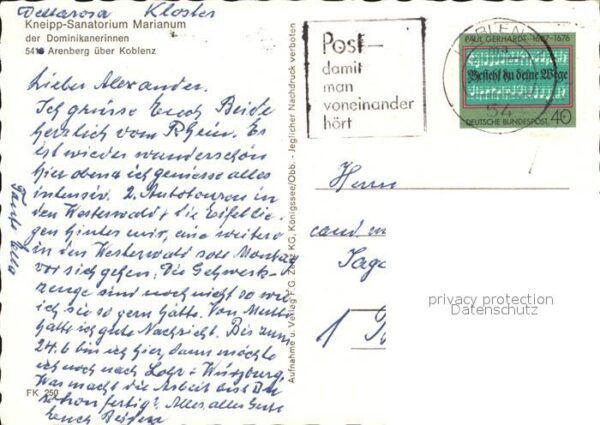 Kloster
Kneipp-Sanatorium Marianum
der Dominikanerinnen
5416 Arenberg über Koblenz
Lieber Alexander.
Ich grüsse Euch Beide
herzlich vom Rhein. Es
ist wieder wunderschön
hier oben u ich geniesse alles
intensiv. 2. Autotouren in
den Westerwald + die Eifel lie-
gen hinter mir, eine weitere
in den Westerwald soll Montag
vor sich gehen. Die Gehwerk-
zeuge sind noch nicht so wie
ich sie so gern hätte. Von Mutti
hatte ich gute Nachricht. Bis zum
24.6 bin ich hier, dann möchte
ich noch nach Lohr + Würzburg.
Was macht die Arbeit bist Du
schon fertig? Alles, alles Gute
Euch Beiden
Tante
FK 250
Aufnahme u. Verlag F. G. Zeitz KG, Königssee/Obb. - Jeglicher Nachdruck verboten
Post-
damit
man
voneinander
hört
54
PAUL GERHARDT · 1607-1676
Befiehl du deine Wege
DEUTSCHE BUNDESPOST 40
Herrn
cand
1
privacy protection
Datenschutz